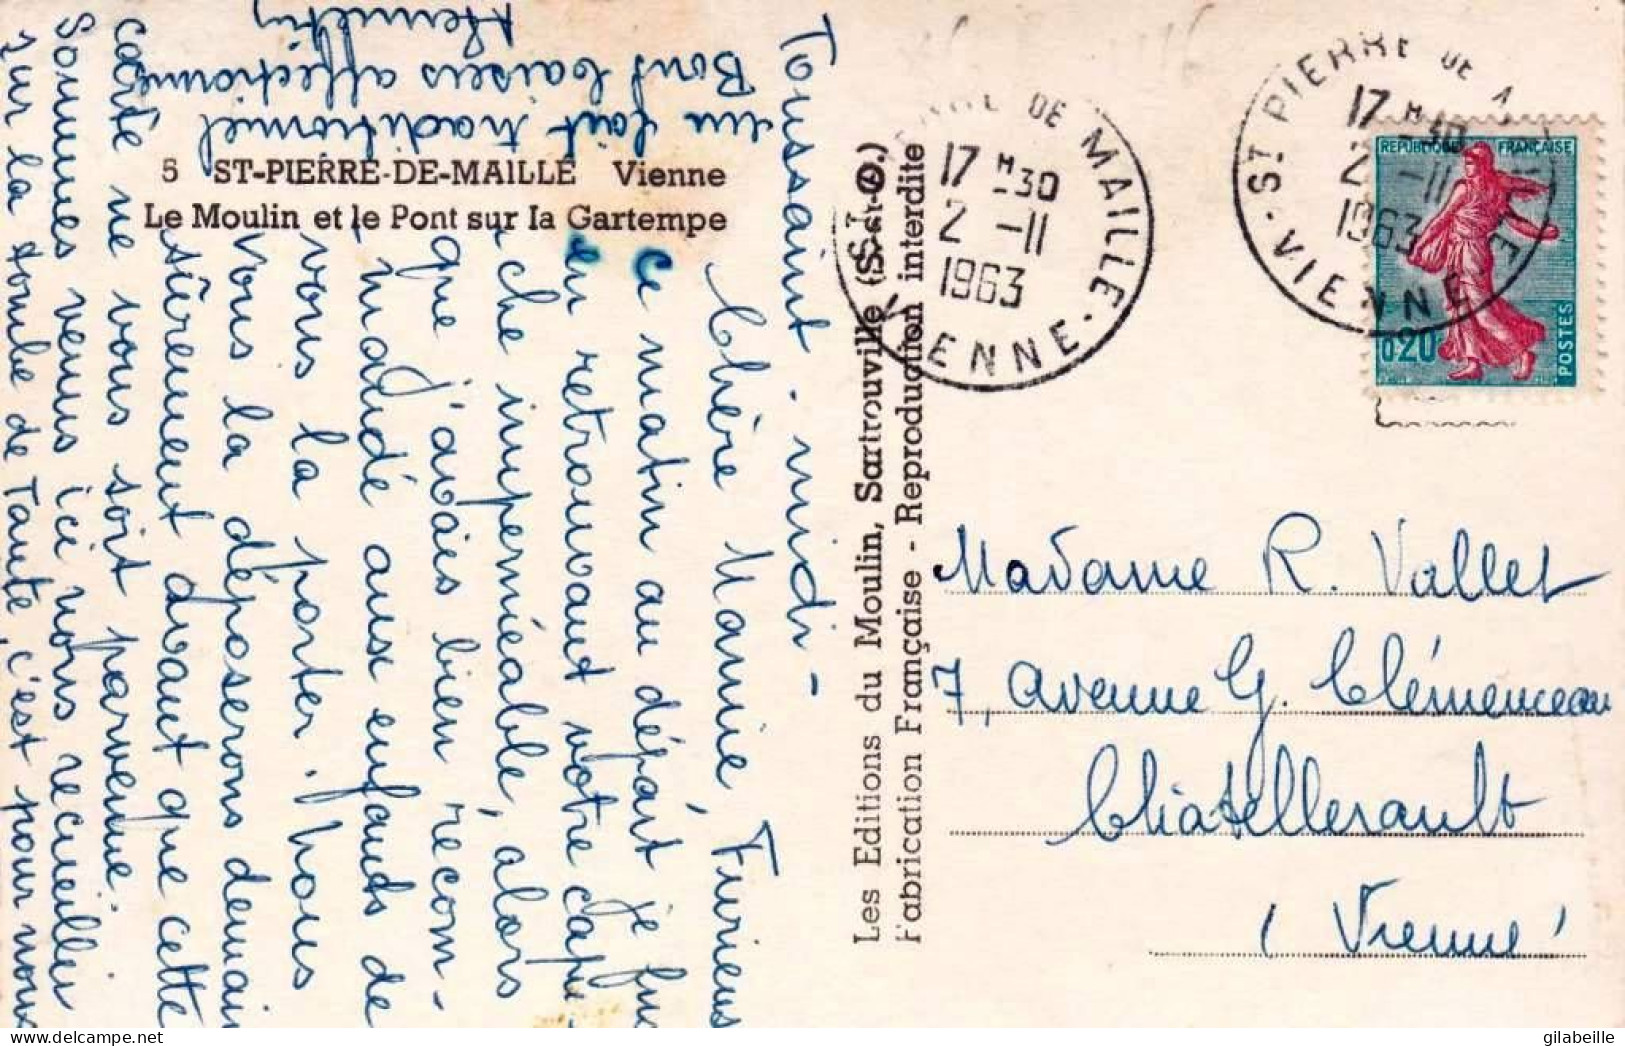 5 ST-PIERRE-DE-MAILLE Vienne
Le Moulin et le Pont sur la Gartempe
Toussaint - midi -
Chère Mamie,
Ce matin au départ je fus
en retrouvant votre cape
che imperméable, alors
que j'avais bien recom-
mandé aux enfants de
vous la porter. Nous
vous la déposerons demain
sûrement avant que cette
carte ne vous soit parvenue.
Sommes venus ici nous recueillir
sur la tombe de Tante, c'est pour nous
un fait traditionnel
Bons baisers affectionnés
Les Editions du Moulin, Sartrouville (S.-et-O.)
Fabrication Française - Reproduction interdite
DE MAILLE
17 H 30
2 -11
1963
VIENNE
ST PIERRE DE
17 H 30
2 -11
1963
VIENNE
REPUBLIQUE FRANÇAISE
0,20
POSTES
Madame R. Vallet
7, avenue G. Clémenceau
Châtellerault
(Vienne)
gilabeille